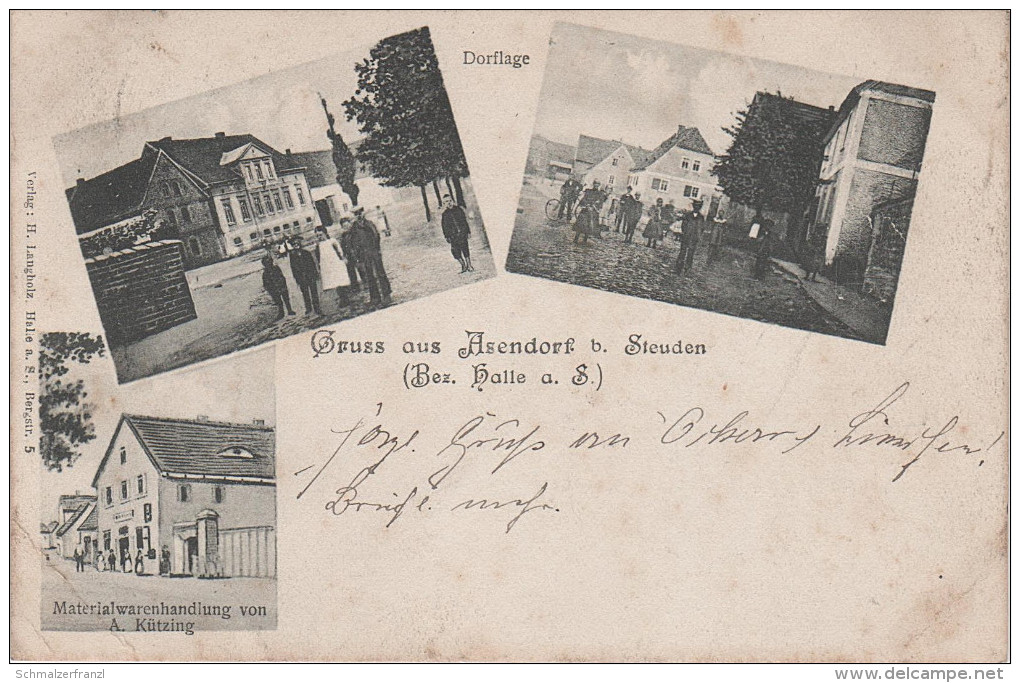 Dorflage
Verlag: H. Langholz. Halle a. S., Bergstr. 5
Gruss aus Asendorf b. Steuden
(Bez. Halle a. S.)
Gruß an
Brief l. mehr.
Materialwarenhandlung von
A. Kützing
Schmalzerfranzl
www.delcampe.net